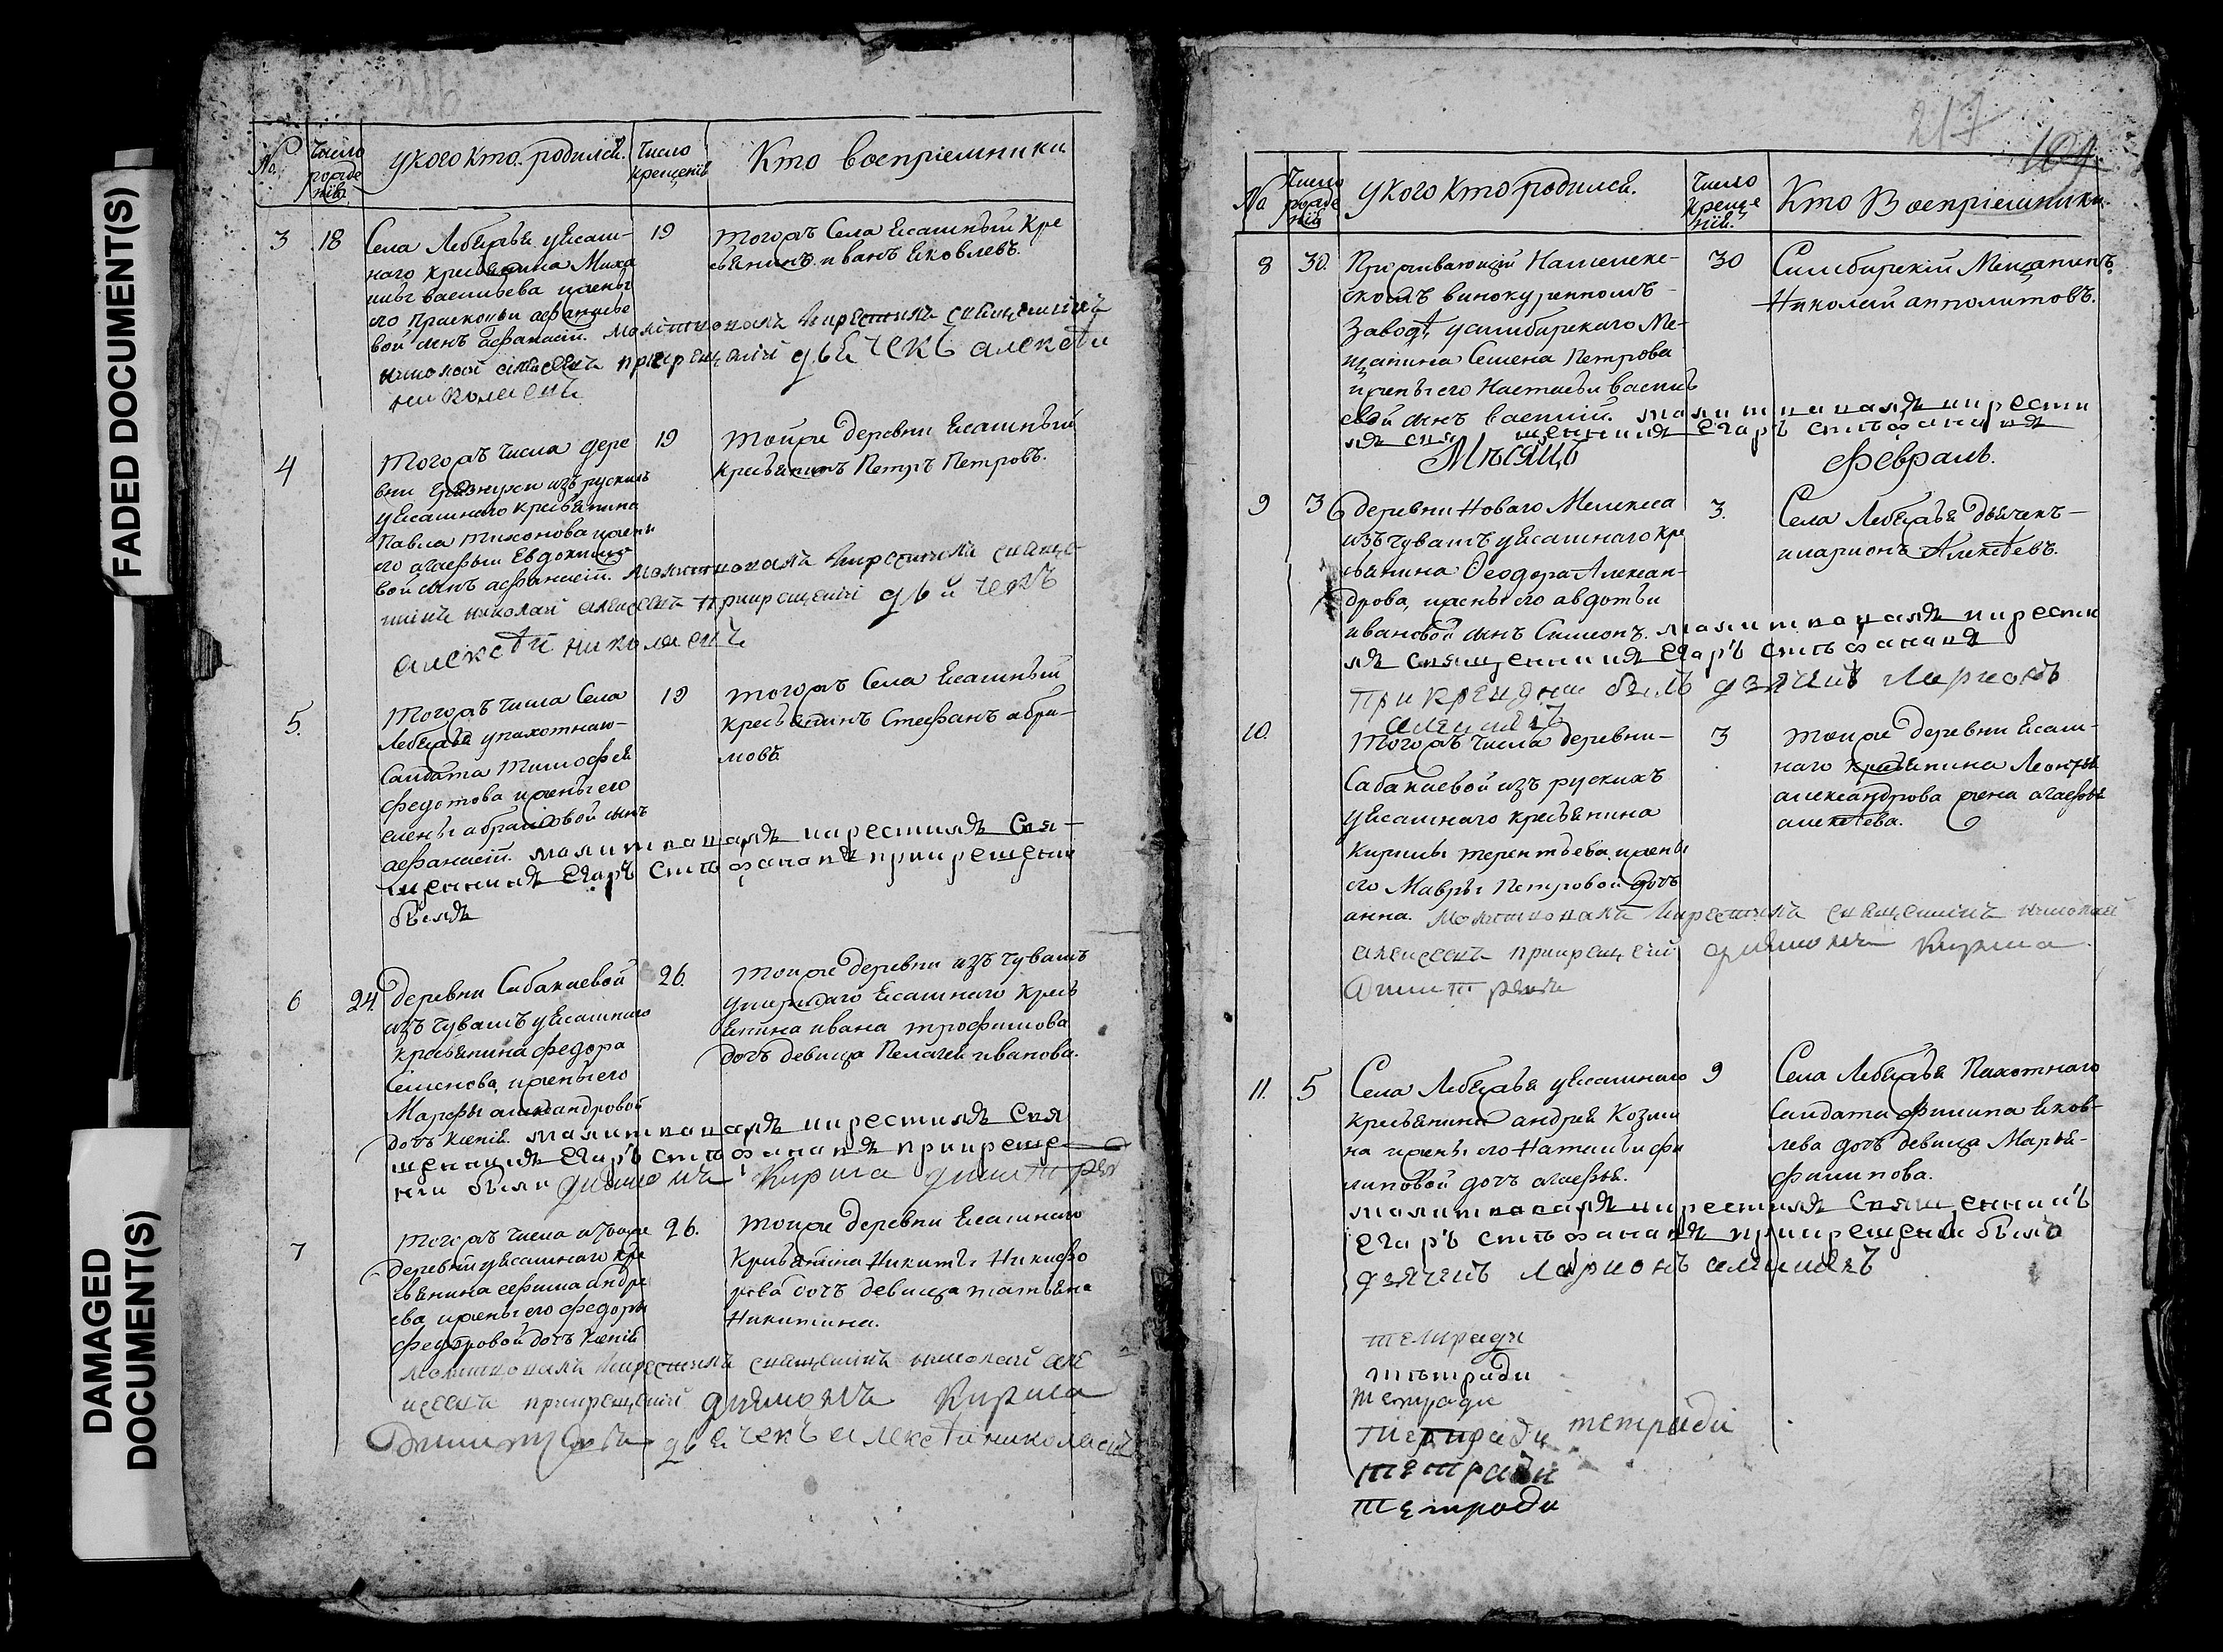 FADED DOCUMENT(S)
DAMAGED
DOCUMENT(S)
216
№
Число
рожде
нія
У кого кто родился.
Число
крещенія
Кто воспріемники
3
18
Села Лебяжья у ясаш-
наго кресьянина Миха
илы васильева и жены
его Прасковьи афанасье
вой сынъ афанасій. молитвовалъ и крестилъ священникъ
николай алексеевъ при крещеніи дьячекъ алексѣй
николаевъ
19
тогожъ Села Ясашный кре
сьянинъ иванъ Яковлевъ.
4
Тогожъ числа дере
вни грязнухи изъ рускихъ
у Ясашнаго кресьянина
Павла тихонова и жены
его агафьи Евдокимо
вой сынъ афанасій. молитвовалъ и крестилъ священ-
никъ николай алексеевъ при крещеніи дьячекъ
алексѣй николаевъ
19
тойже деревни Ясашный
кресьянинъ Петръ Петровъ.
5.
Тогожъ числа Села
Лебяжья у пахотнаго
Салдата Тимофея
федотова и жены его
елены абрамовой сынъ
афанасій. молитвовалъ и крестилъ Свя-
щенникъ Егаръ Стефановъ при крещении
былъ
19
тогожъ Села Ясашный
кресьянинъ Стефанъ абра-
мовъ
6
24
деревни Сабакаевой
изъ чувашъ у Ясашнаго
кресьянина федора
Семенова и жены его
Марфы александровой
дочь Ксенія. молитвовалъ и крестилъ Свя
щенникъ Егаръ Стефановъ при креще
нии были дияконъ Кирила дмитрев
26.
тойже деревни изъ чувашъ
умершаго Ясашнаго кресь
янина ивана трофимова
дочь девица Пелагея иванова.
7
Тогожъ числа и тоже
деревни у Ясашнаго кре
сьянина ефима андре
ева и жены его федоры
федоровой дочь Ксенія
молитвовалъ и крестилъ священникъ николай але
ксеевъ при крещеніи дияконъ Кирила
Дмитревъ дьячекъ алексѣй николаевъ
26.
тойже деревни Ясашнаго
Кресьянина Никиты Никифо
рова дочь девица татьяна
Никитина.
217
109
№
Число
рожде
нія
У кого кто родился.
Число
креще
нія.
Кто Воспріемники.
8
30.
Проживающій На
скомъ винокуренномъ
Заводѣ у симбирскаго Ме-
щанина Семена Петрова
и жены его Настасьи василь
евой сынъ василій. молитвовалъ и крести
лъ священникъ Егаръ Стефановъ
30
Симбирскій Мещанинъ
Николай апполитовъ.
Мѣсяцъ
февраль.
9
3
деревни Новаго Мелекеса
изъ чувашъ у Ясашнаго кре
сьянина Ѳеодора Алексан-
дрова, и жены его авдотьи
ивановой сынъ Симеонъ. молитвовалъ и крести
лъ священникъ Егаръ Стефановъ
При крещении былъ дьячекъ Ларионъ
алексеевъ
3.
Села Лебяжья дьячекъ
иларионъ Алексѣевъ.
10.
Тогожъ числа деревни
Сабакаевой изъ рускихъ
у Ясашнаго кресьянина
Кирилы терентьева и жены
его Мавры Петровой дочь
анна. молитвовалъ и крестилъ священникъ николай
алексеевъ при крещеніи дияконъ Кирила
Дмитревъ
3
тойже деревни Ясаш-
наго кресьянина Леонтья
александрова жена агафья
алексѣева.
11.
5
Села Лебяжья у Ясашнаго
кресьянина андрея Козми
на и жены его Натальи фи
липовой дочь агафья.
молитвовалъ и крестилъ Священникъ
Егаръ Стефановъ при крещении былъ
дьячекъ Ларионъ алексеевъ
9
Села Лебяжья Пахотнаго
Салдата филипа Яков-
лева дочь девица Марья
филипова.
тетради
тетради
тетради
тетради тетради
тетради
тетради